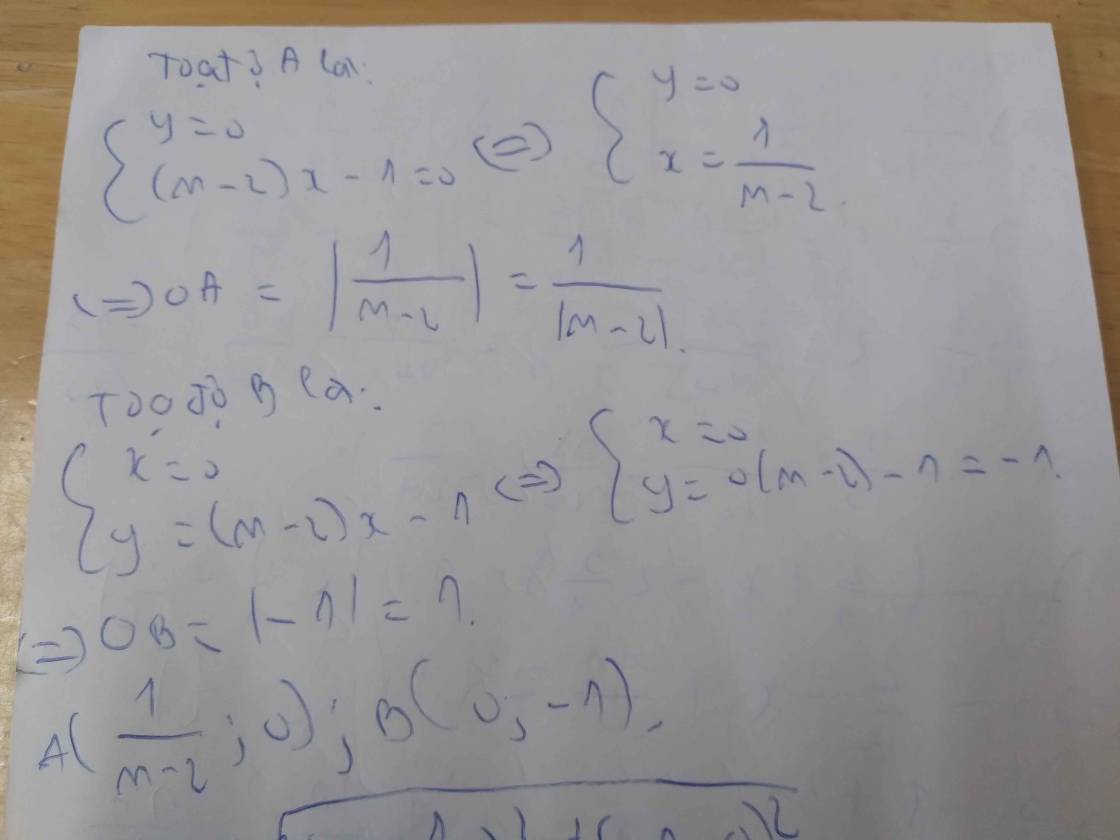 Toạ độ A là:
{ y = 0 (m - 2)x - 1 = 0 <=> { y = 0 x = 1/(m - 2).
<=> OA = |1/(m - 2)| = 1/|m - 2|.
Toạ độ B là:
{ x = 0 y = (m - 2)x - 1 <=> { x = 0 y = 0(m - 2) - 1 = -1.
<=> OB = |-1| = 1.
A(1/(m - 2); 0); B(0; -1).